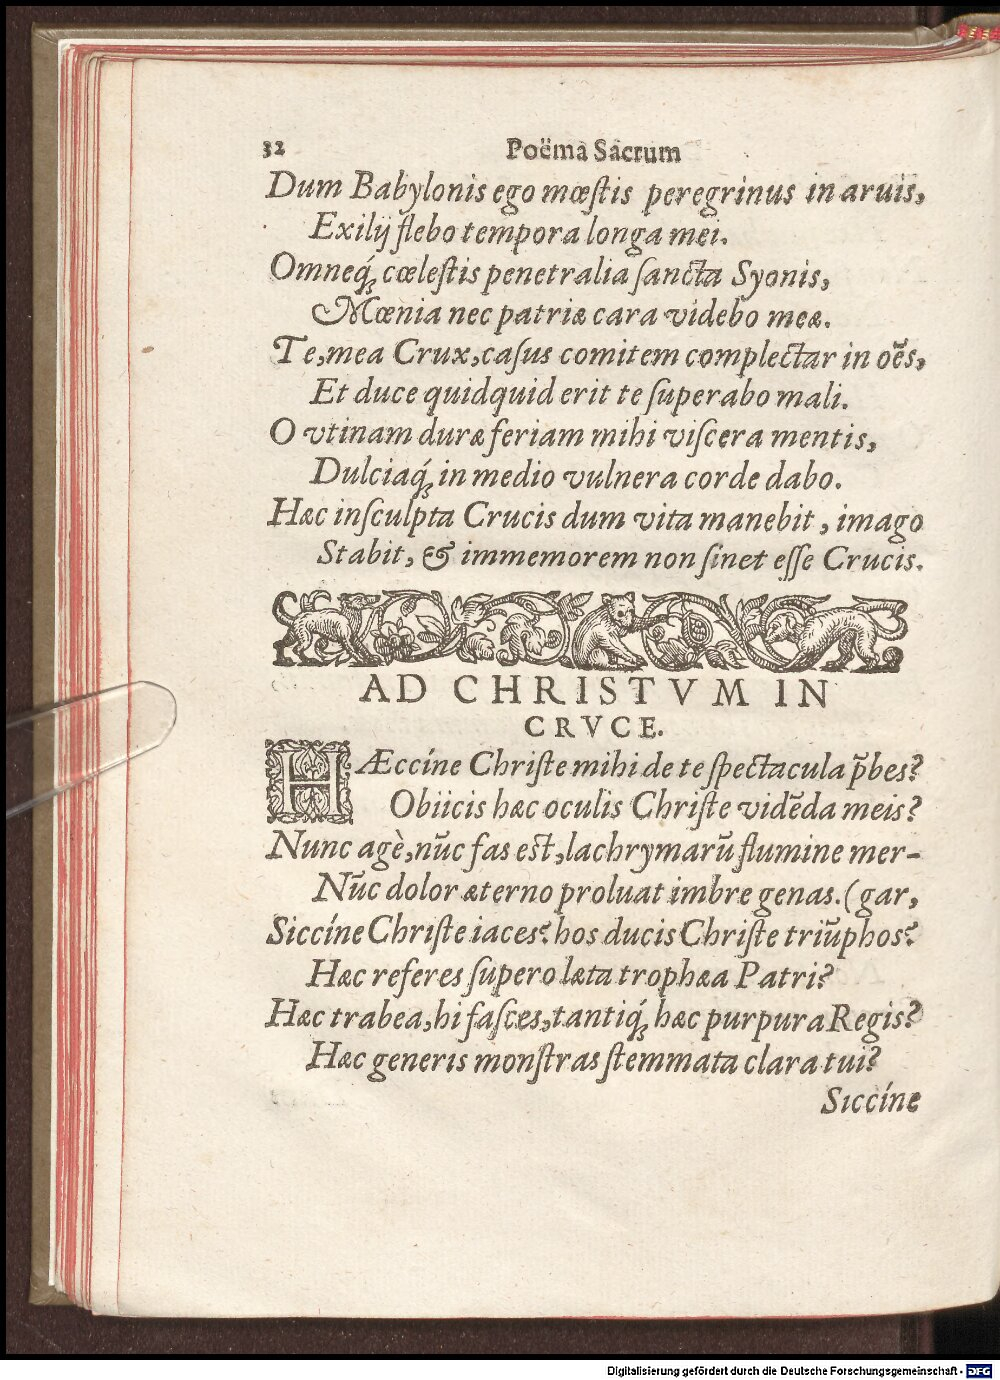 32 Poëma Sacrum
Dum Babylonis ego mœſtis peregrinus in aruis,
Exilij flebo tempora longa mei.
Omneq́; cœleſtis penetralia ſancta Syonis,
Mœnia nec patriæ cara videbo meæ.
Te, mea Crux, caſus comitem complectar in oẽs,
Et duce quidquid erit te ſuperabo mali.
O vtinam duræ feriam mihi viſcera mentis,
Dulciaq́; in medio vulnera corde dabo.
Hæc inſculpta Crucis dum vita manebit, imago
Stabit, & immemorem non ſinet eſſe Crucis.
AD CHRISTVM IN
CRVCE.
HÆccíne Chriſte mihi de te ſpectacula p̃bes?
Obiicis hæc oculis Chriſte vidẽda meis?
Nunc agè, nũc fas eſt, lachrymarũ flumine mer-
Nũc dolor æterno proluat imbre genas. (gar,
Siccíne Chriſte iaces? hos ducis Chriſte triũphos?
Hæc referes ſupero læta trophæa Patri?
Hæc trabea, hi faſces, tantiq́; hæc purpura Regis?
Hæc generis monſtras ſtemmata clara tui?
Siccíne
Digitalisierung gefördert durch die Deutsche Forschungsgemeinschaft - DFG